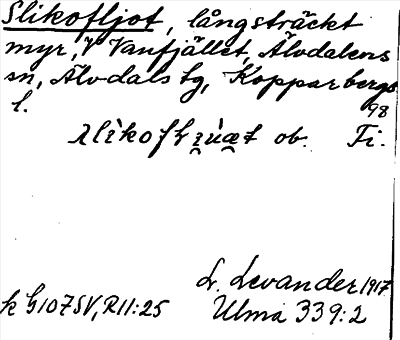 Slikofljot, långsträckt
myr, V Vanfjället, Älvdalens
sn, Älvdals tg, Kopparbergs
l. 98
ob. Fi.
L. Levander 1917
k G107SV, R11:25 Ulma 339:2